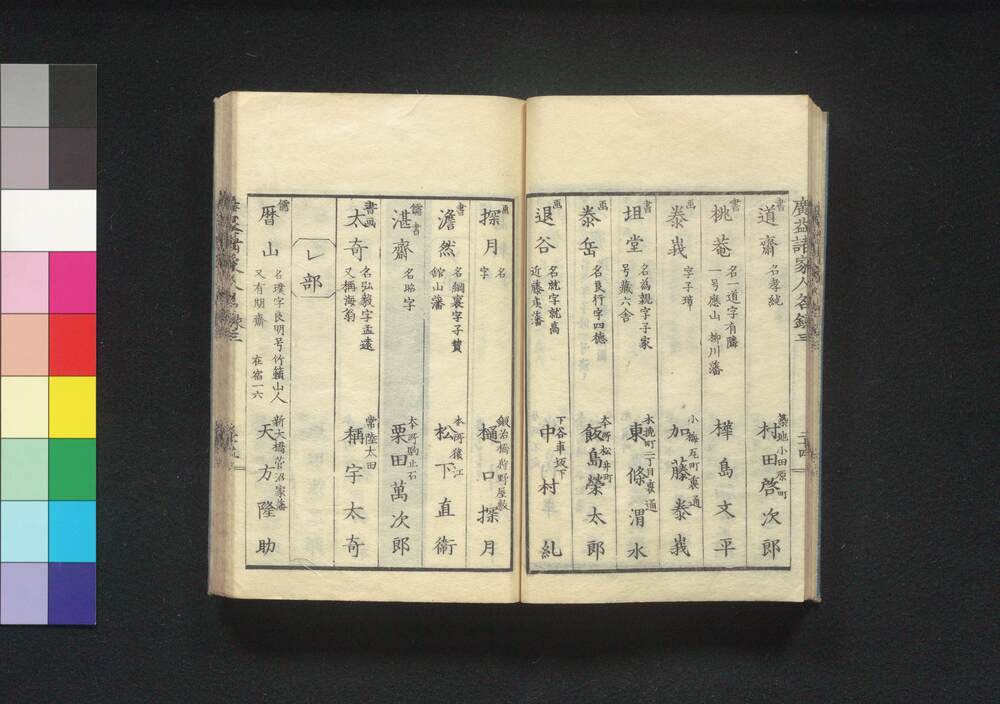 廣益諸家人名錄三
書 道齋 名孝純 築地小田原町 村田啓次郎
書 桃菴 名一道字有隣 一号應山 柳川藩 樺島文平
画 泰峩 字子璋 小梅瓦町裏通 加藤泰峩
書 坦堂 名為親字子家 号藏六舎 木挽町二丁目裏通 東條渭水
画 泰岳 名良行字四德 本所松井町 飯島榮太郎
画 退谷 名就字就嵩 近藤 藩 下谷車坂下 中村糺
画 探月 名 字 鍛冶橋狩野屋敷 樋口探月
書 澹然 名綱褁字子贊 舘山藩 本所猿江 松下直衛
儒書 湛齋 名昭字 本所駒止石 栗田萬次郎
書画 太奇 名弘毅字孟遠 又稱海翁 常陸太田 稱宇太奇
レ部
儒 曆山 名璞字良明号竹 山人 又有期齋 在宿一六 新大橋菅沼家藩 天方隆助